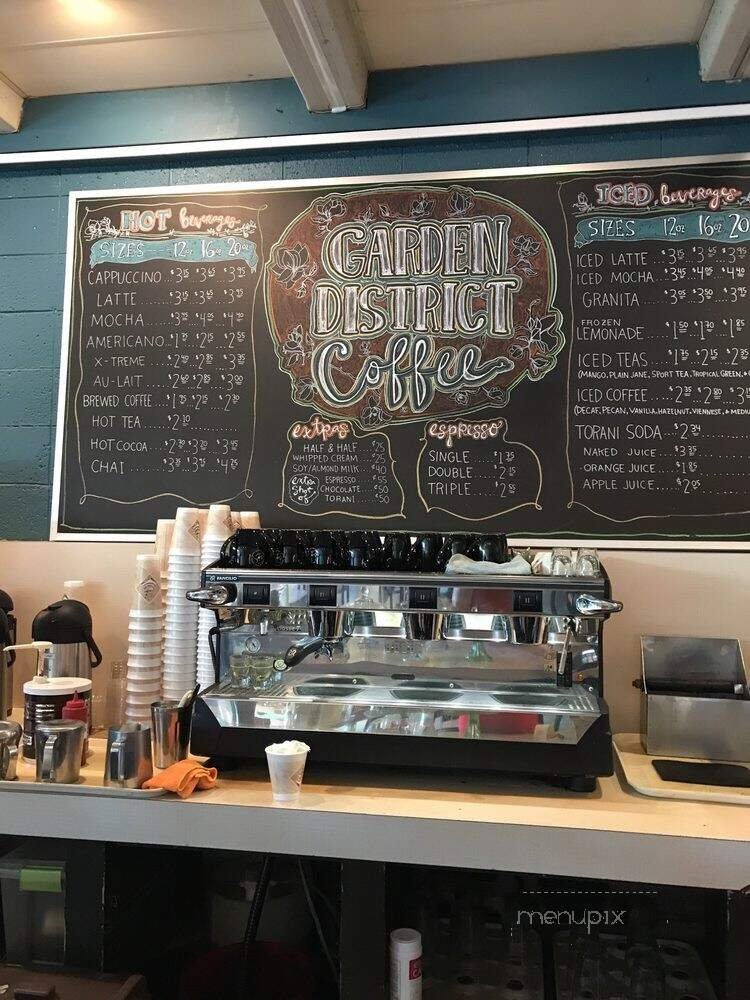 HOT beverages
SIZES 12oz 16oz 20oz
CAPPUCCINO $3.15 $3.65 $3.95
LATTE $3.15 $3.65 $3.95
MOCHA
AMERICANO $2.55
X-TREME
AU-LAIT $2.60 $2.85 $3.00
BREWED COFFEE
HOT TEA $2.10
HOT COCOA
CHAI
GARDEN
DISTRICT
Coffee
extras
HALF & HALF ¢25
WHIPPED CREAM ¢25
SOY/ALMOND MILK ¢40
extra shot of:
ESPRESSO ¢55
CHOCOLATE ¢50
TORANI ¢50
espresso
SINGLE
DOUBLE
TRIPLE $2.55
ICED beverages
SIZES 12oz 16oz 20
ICED LATTE
ICED MOCHA
GRANITA
FROZEN
LEMONADE $1.50 $1.70 $1.85
ICED TEAS
(MANGO, PLAIN JANE, SPORT TEA, TROPICAL GREEN,
ICED COFFEE
(DECAF, PECAN, VANILLA, HAZELNUT, VIENNESE,
TORANI SODA
NAKED JUICE
ORANGE JUICE $1.85
APPLE JUICE $2.05
RANCILIO
menupix